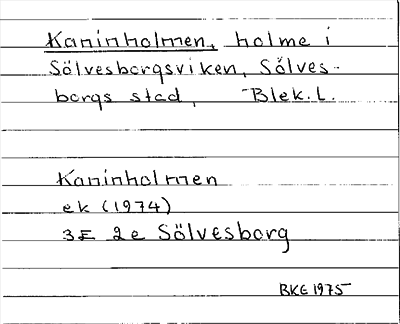 Kaninholmen, holme i
Sölvesborgsviken, Sölves-
borgs stad, Blek. l.
Kaninholmen
ek (1974)
3E 2e Sölvesborg
BKE 1975